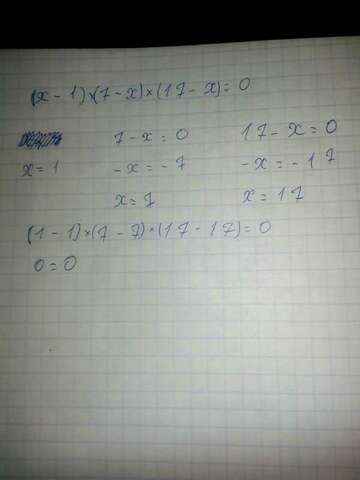 (x - 1)×(7 - x)×(17 - x) = 0
7 - x = 0 17 - x = 0
x = 1 -x = -7 -x = -17
x = 7 x = 17
(1 - 1)×(7 - 7)×(17 - 17) = 0
0 = 0